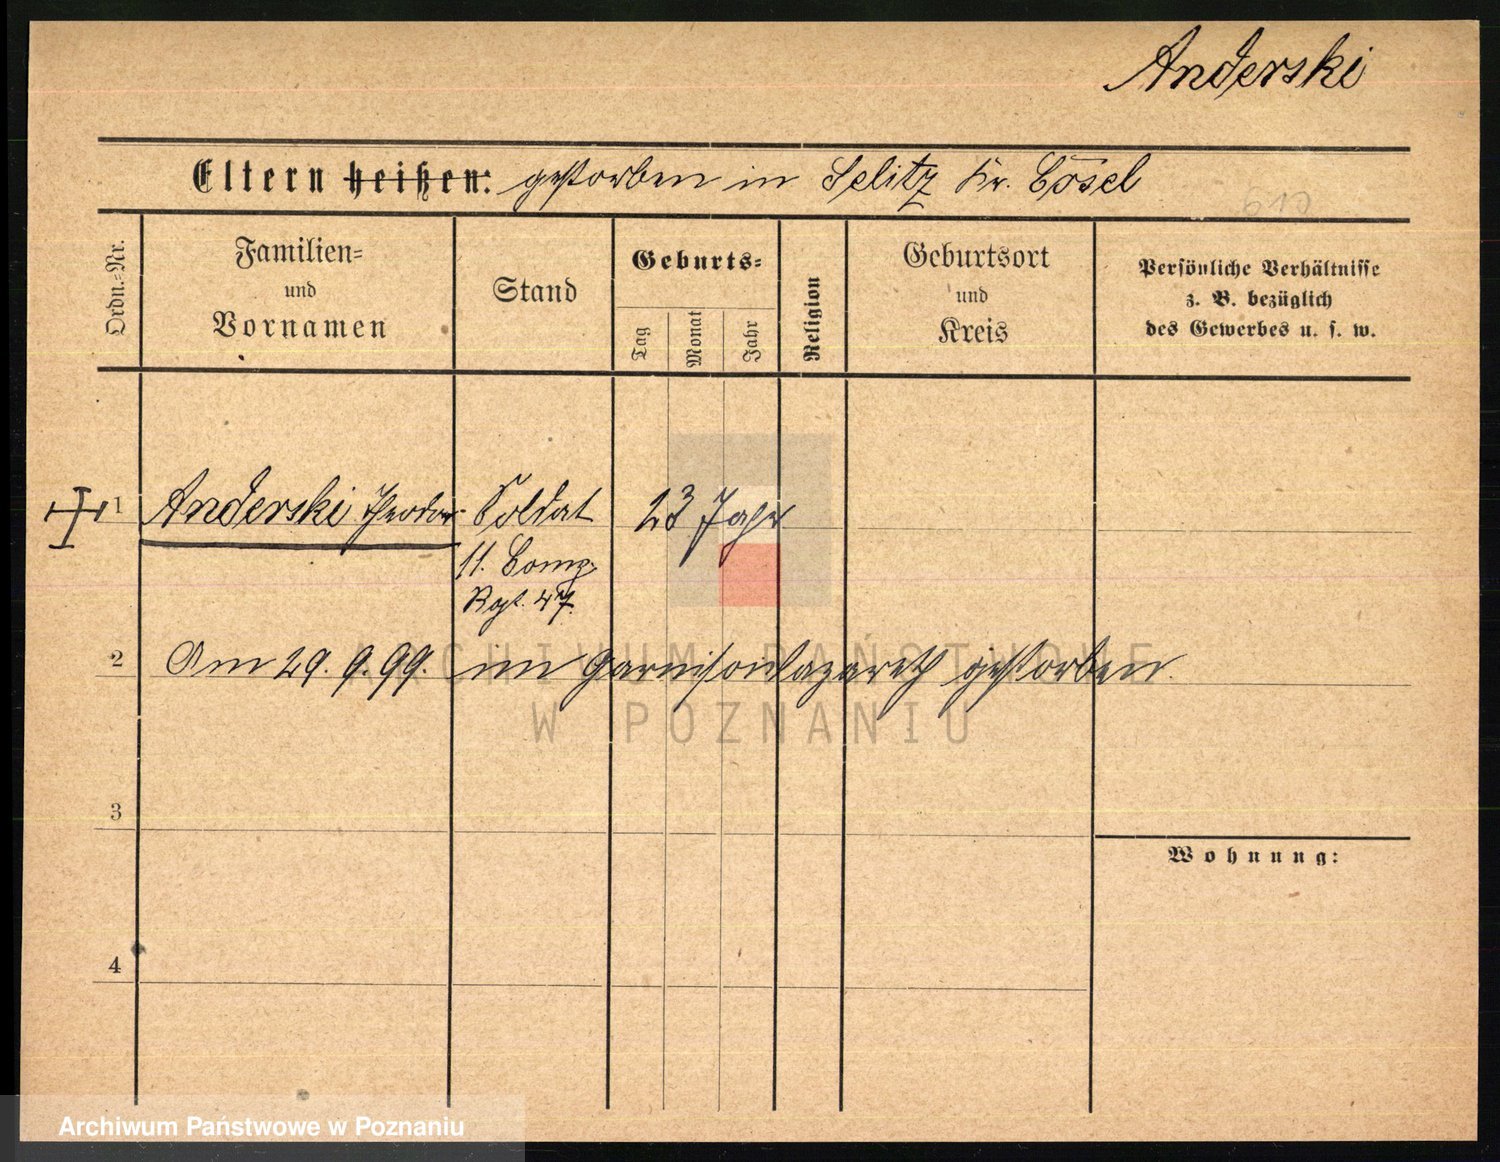 Anderski
Eltern heißen: gestorben in Selitz Kr. Cosel
610
Ordn.=Nr.
Familien=
und
Vornamen
Stand
Geburts=
Tag
Monat
Jahr
Religion
Geburtsort
und
Kreis
Persönliche Verhältnisse
z. B. bezüglich
des Gewerbes u. s. w.
1 Anderski Theodor Soldat 23 Jahr
11. Comp.
Rgt. 47.
2 Am 29. 9. 99. im Garnisonlazareth gestorben.
ARCHIWUM PAŃSTWOWE
W POZNANIU
3
Wohnung:
4
Archiwum Państwowe w Poznaniu